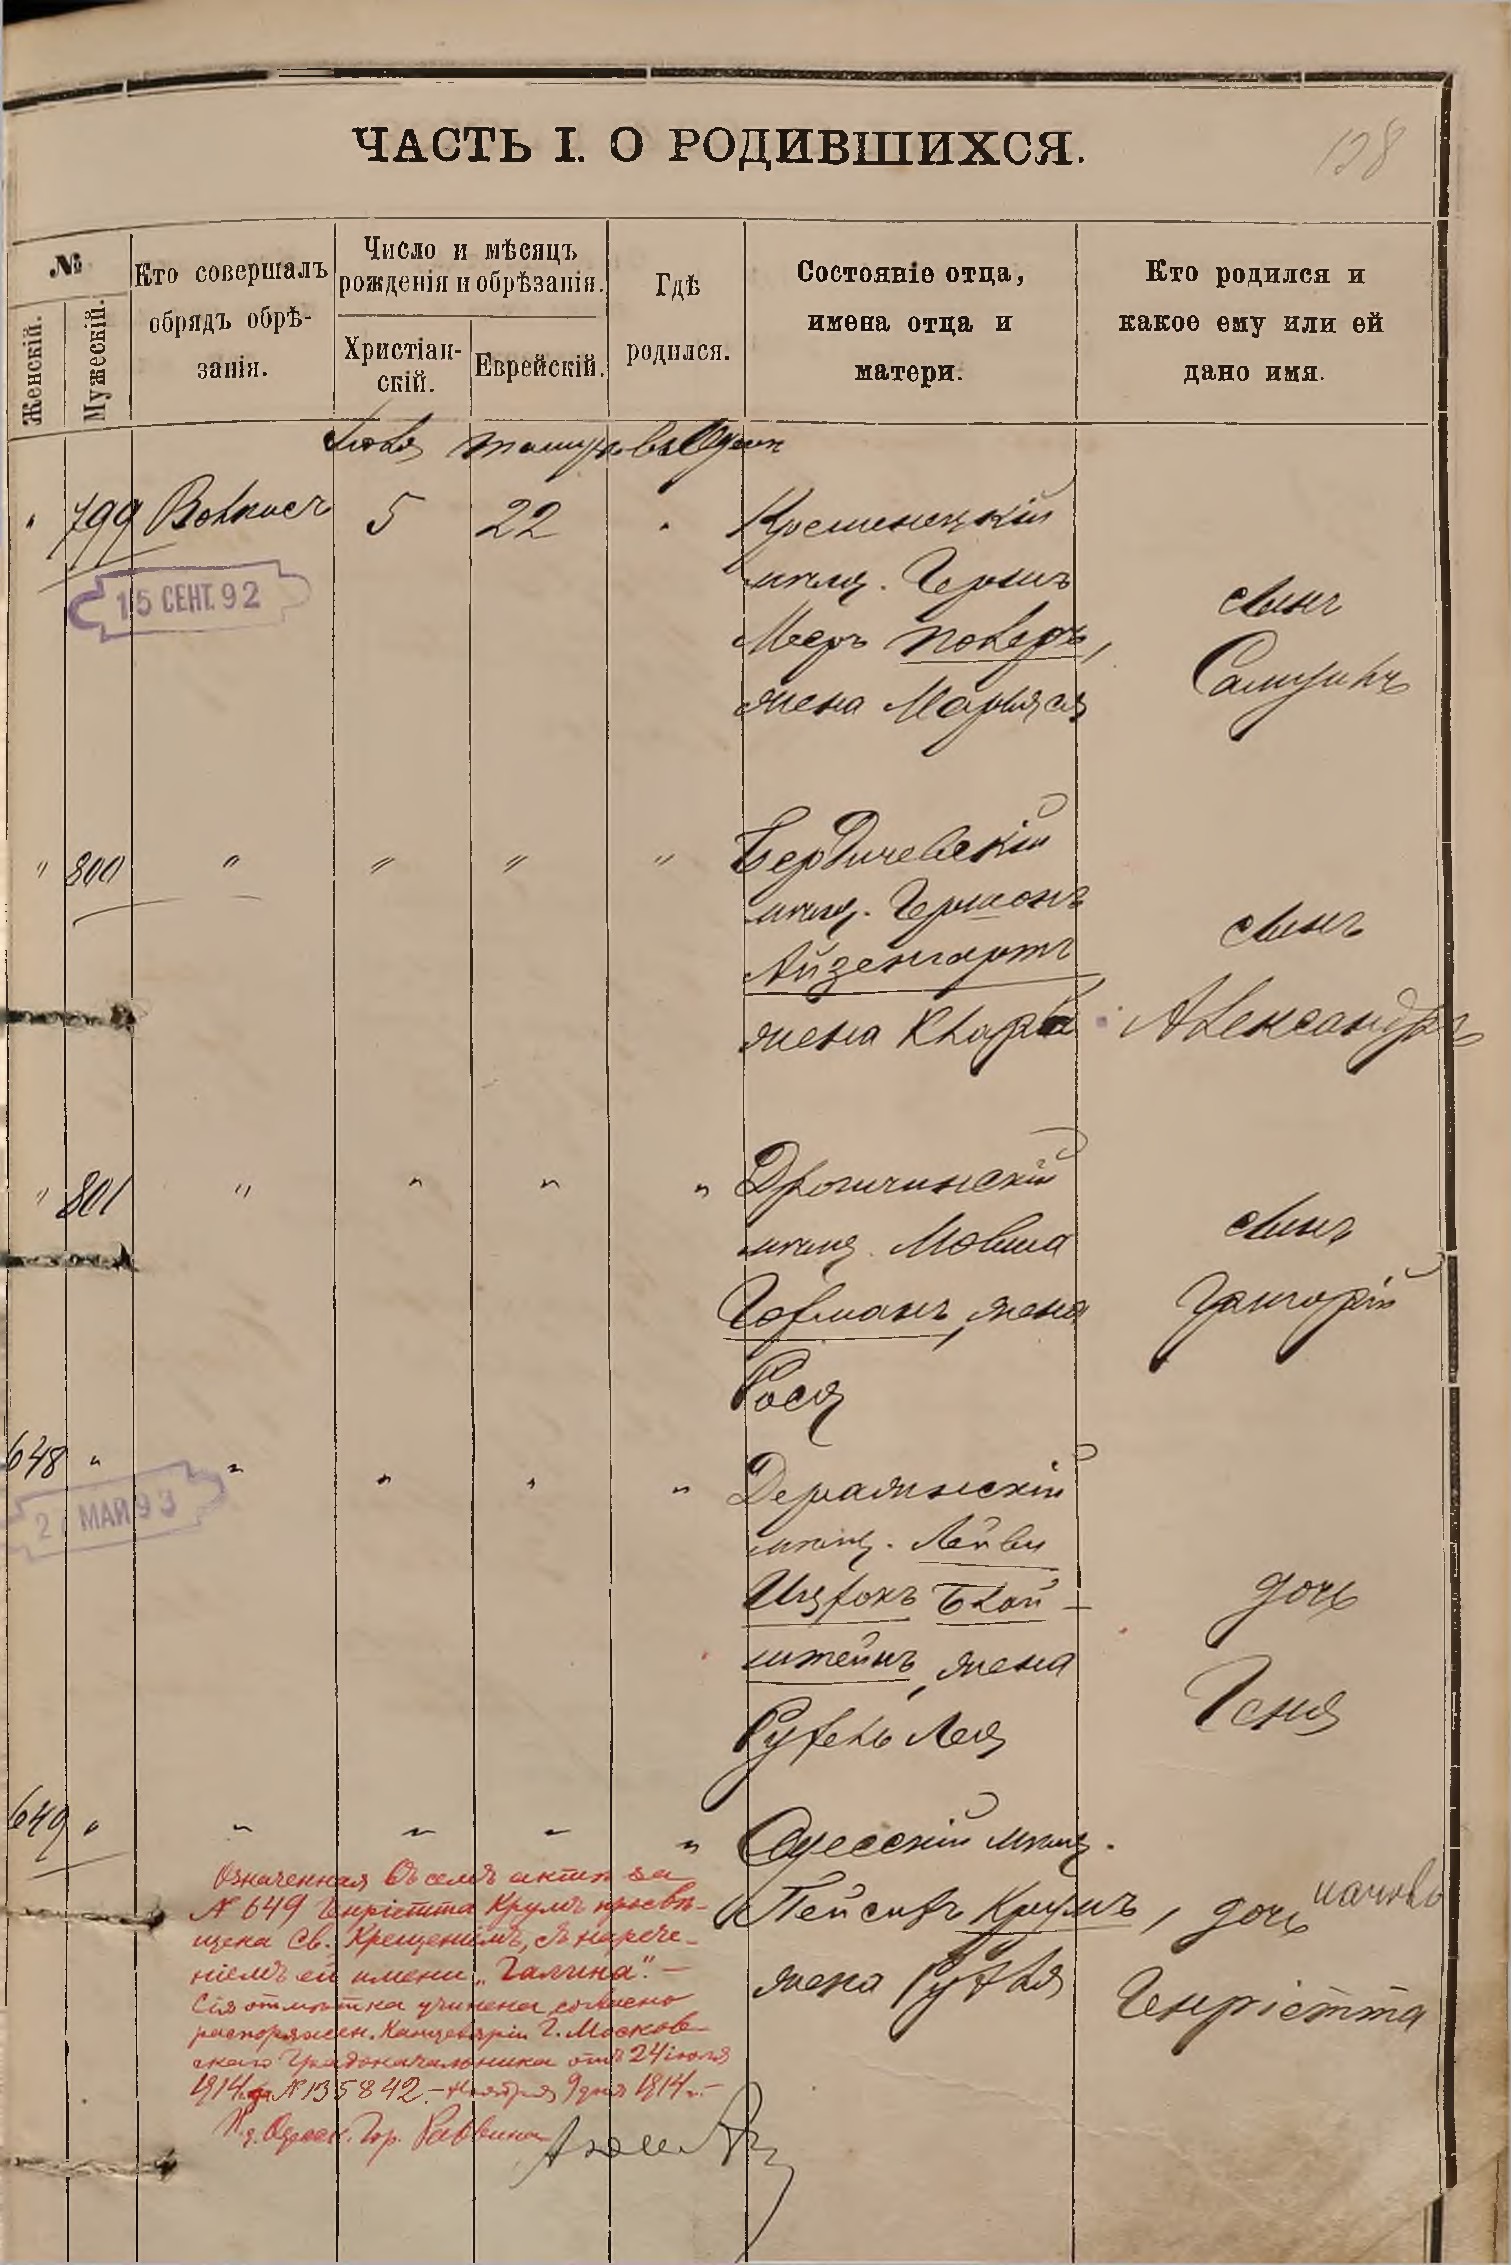 ЧАСТЬ I. О РОДИВШИХСЯ.
128
№
Женскій.
Мужескій.
Кто совершалъ
обрядъ обрѣ-
занія.
Число и мѣсяцъ
рожденія и обрѣзанія.
Христіан-
скій.
Еврейскій.
Гдѣ
родился.
Состояніе отца,
имена отца и
матери.
Кто родился и
какое ему или ей
дано имя.
Іюля
" 799 5 22
15 СЕНТ. 92
Кременецкій
мѣщ. Гершъ
Мееръ
жена
сынъ
Самуилъ
" 800 " " " "
Бердичевскій
мѣщ. Гершонъ
Айзенгартъ
жена Клара
сынъ
Александръ
" 801 " " " "
Дрогичинскій
мѣщ. Мовша
Гофманъ, жена
Рося
сынъ
Григорій
648 " " " " "
2 МАЙ 93
Деражнскій
мѣщ. Лейви
Ицхокъ Блай-
штейнъ, жена
Рухель Лея
дочь
Геня
649 " " " " "
Одесскій мѣщ.
Пейсихъ Крумъ,
жена Рухля
дочь
Генріетта
Означенная въ семъ актѣ за
№ 649 Генріетта Крумъ просвѣ-
щена Св. Крещеніемъ, съ нарече-
ніемъ ей имени „Галина". —
Сія отмѣтка учинена согласно
распоряжен. Канцеляріи Г. Москов-
скаго Градоначальника отъ 24 іюля
1914 г. за № 135842. — Ноября 9 дня 1914 г. —
И. д. Одесск. Гор. Раввина